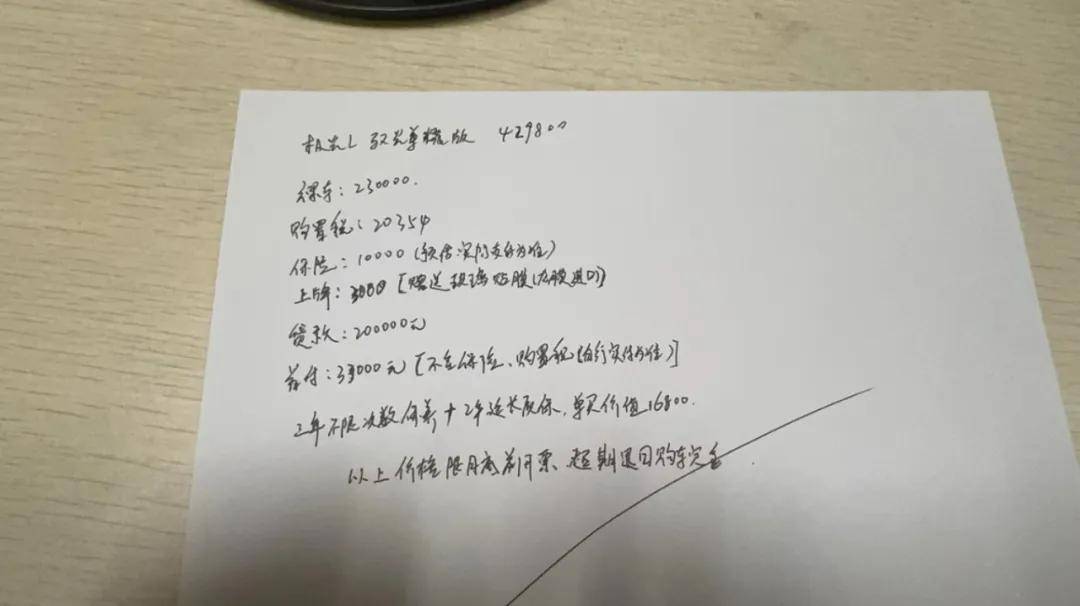 极光L 致尊耀版 429800
裸车:230000.
购置税:20354
保险:10000(预估.实际支付为准)
上牌:3000[赠送玻璃贴膜(龙膜进口)
贷款:200000元
首付:33000元[不含保险、购置税(自行实付为准)]
三年不限次数保养+2年延长质保.单买价值16800.
以上价格限月底前开票、超期退回购车定金.